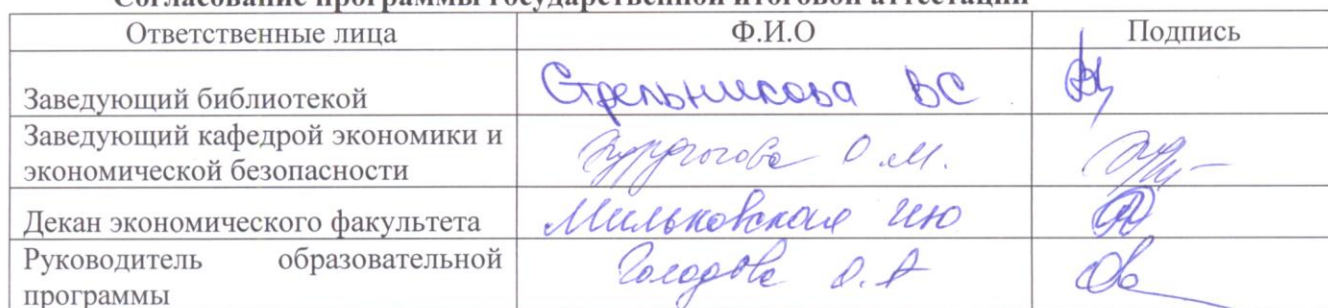 Согласование программы государственной итоговой аттестации
Ответственные лица Ф.И.О Подпись
Заведующий библиотекой Стрельникова ВС
Заведующий кафедрой экономики и
экономической безопасности О.М.
Декан экономического факультета Мильковская ИЮ
Руководитель образовательной
программы О.А